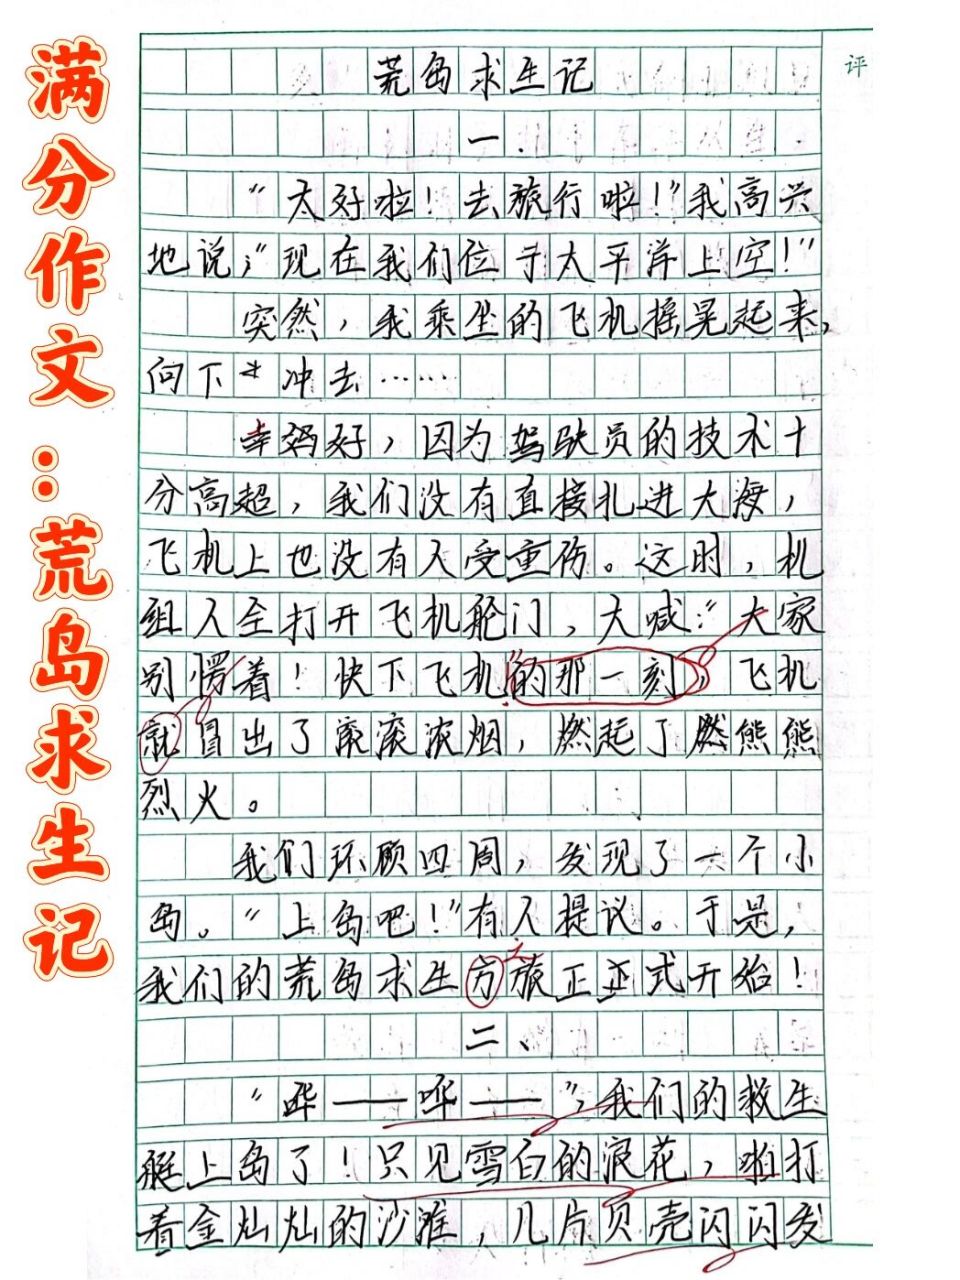 满分作文：荒岛求生记
评
荒岛求生记
一.
“太好啦！去旅行啦！”我高兴
地说，“现在我们位于太平洋上空！”
突然，我乘坐的飞机摇晃起来，
向下冲去……
幸好，因为驾驶员的技术十
分高超，我们没有直接扎进大海，
飞机上也没有人受重伤。这时，机
组人员打开飞机舱门，大喊：“大家
别愣着！快下飞机”的那一刻，飞机
就冒出了滚滚浓烟，燃起了熊熊
烈火。
我们环顾四周，发现了一个小
岛。“上岛吧！”有人提议。于是，
我们的荒岛求生之旅正式开始！
二、
“哗——哗——”，我们的救生
艇上岛了！只见雪白的浪花，啪打
着金灿灿的沙滩，几片贝壳闪闪发